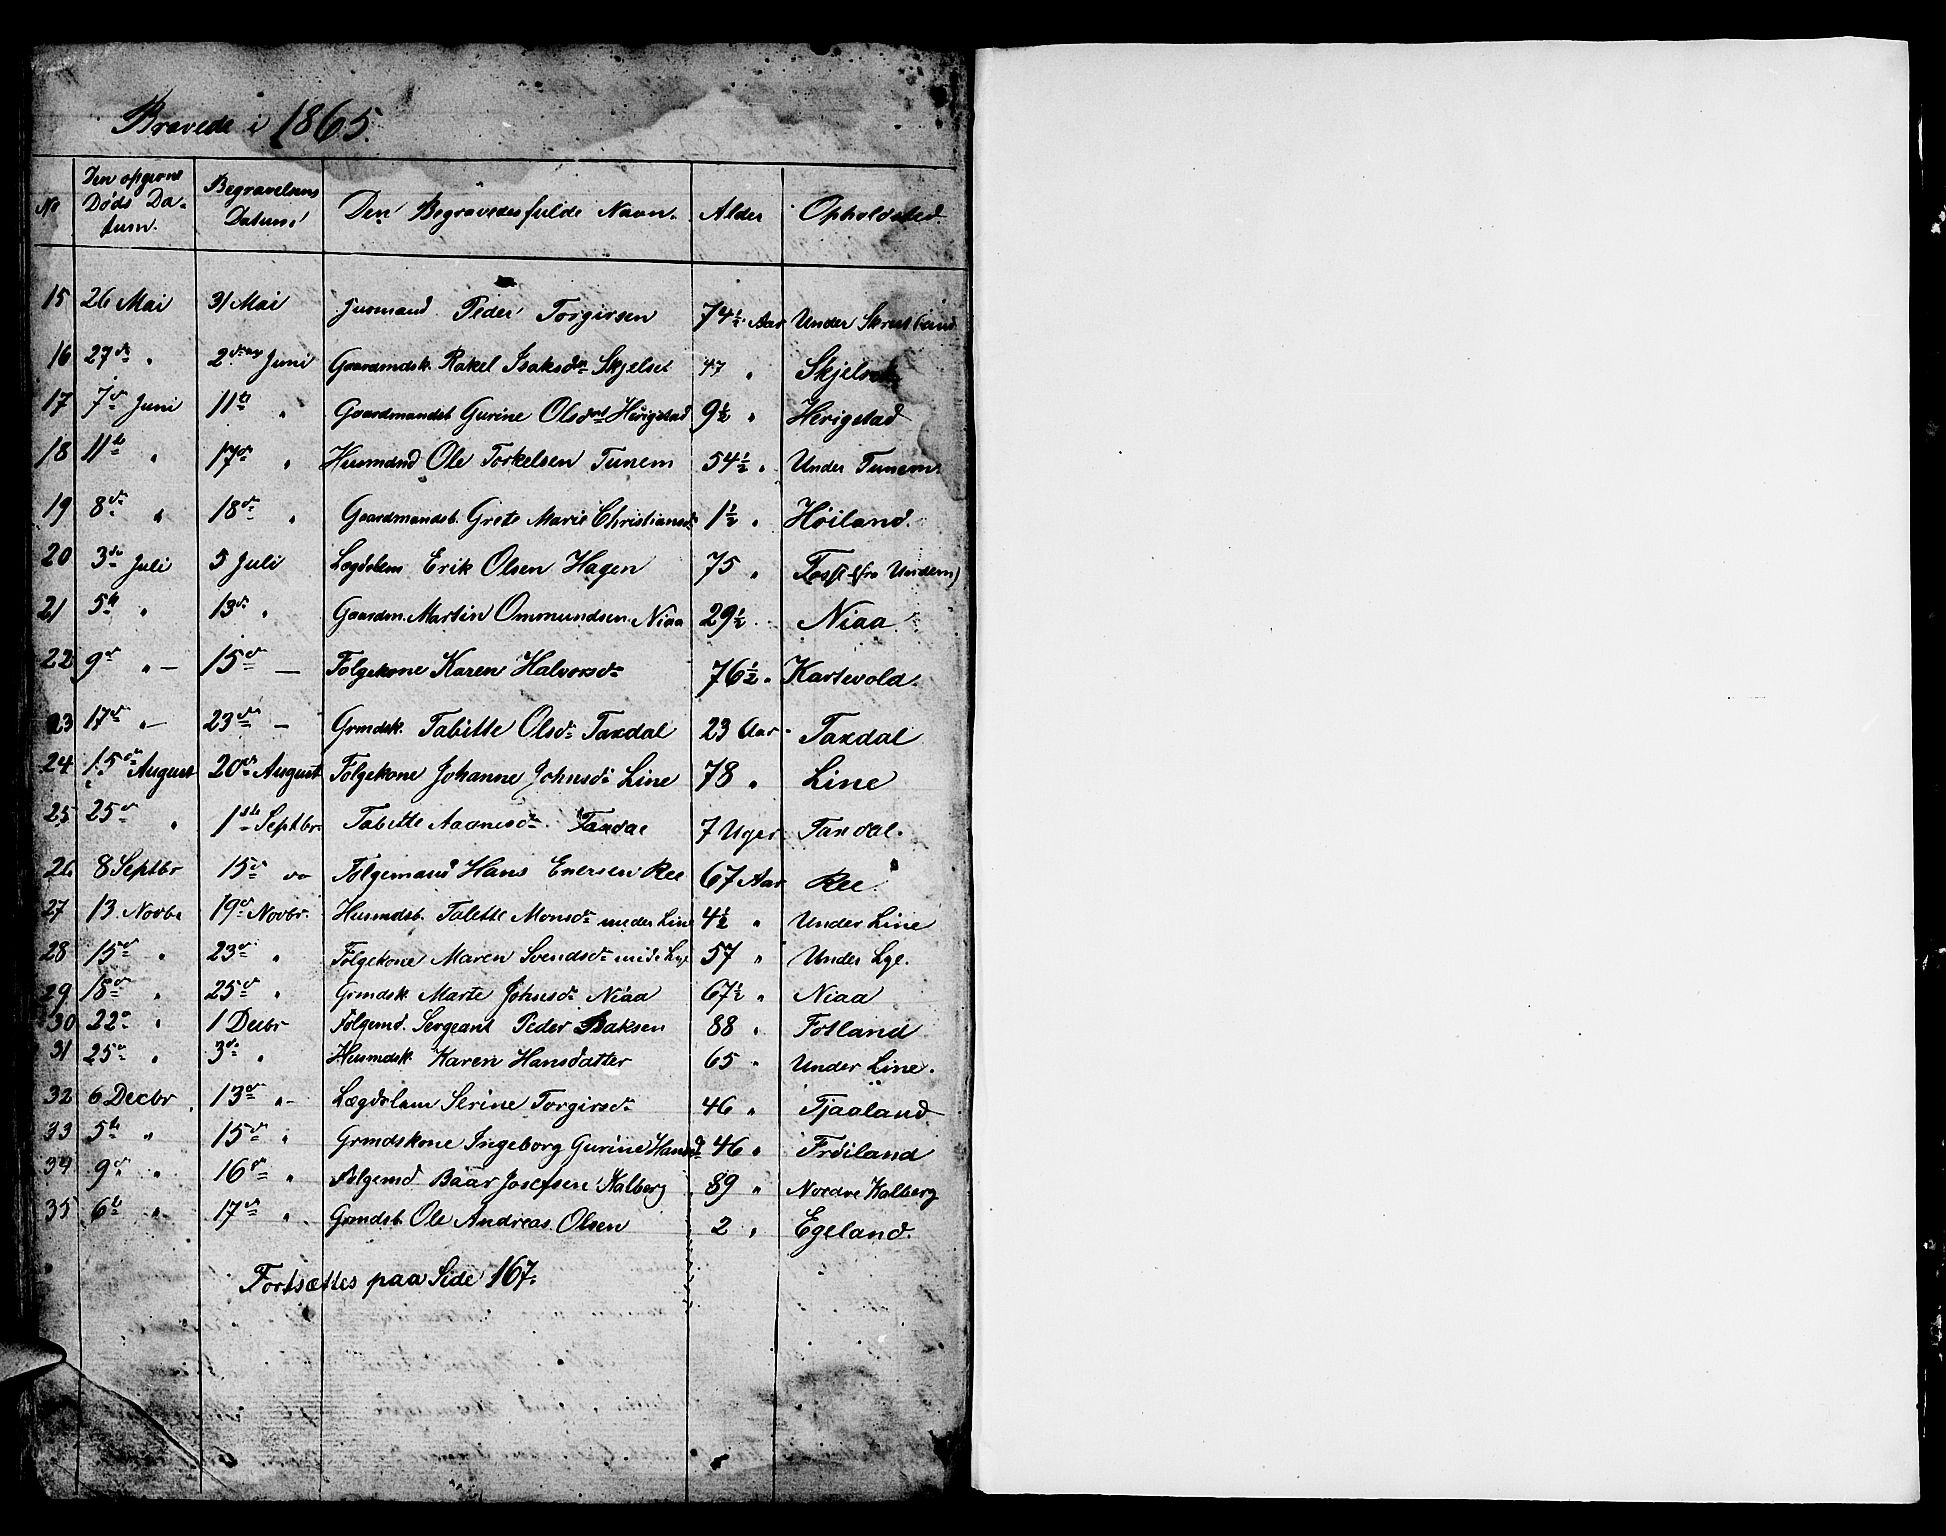 Bravede i 1865.
No Den opgivne Døds Datum. Begravelsens Datum. Den Begravedes fulde Navn. Alder Opholdsted.
15 26 Mai 31 Mai Husmand Peder Torgirsen 74½ Aar Under Skrudland
16 27de " 2den Juni Gaardmdsk. Rakel Isaksdr Skjelset 47 " Skjelset
17 7de Juni 11te " Gaardmandsb. Gurine Olsdat Herigstad 9½ " Herigstad
18 11te " 17de " Husmand Ole Torkelsen Tunem 54½ " Under Tunem.
19 8de " 18de " Gaardmandsb. Grete Marie Christiansdr 1½ " Høiland.
20 3de Juli 5 Juli Lægdslem Erik Olsen Hagen 75 " (fra Undem)
21 5te " 13de " Gaardm. Martin Ommundsen Niaa 29½ Niaa
22 9de " — 15de — Følgekone Karen Halvorsdr 76½ " Kartevold.
23 17de " — 23de — Grmdsk. Tabitte Olsdr Taxdal 23 Aar Taxdal
24 15de August 20de August Følgekone Johanne Johnsdr Line 78 " Line
25 25de " 1ste Septbr. Tabitte Aanensdr Taxdal 7 Uger Taxdal.
26 8 Septbr 15de do Følgemand Hans Enersen Ree 67 Aar Ree.
27 13 Novbr 19de Novbr. Husmdsb. Talette Monsdr under Line 4½ " Under Line
28 15de " 23de " Følgekone Maren Svendsdr under Lye 57 " Under Lye.
29 18de " 25de " Grmdsk. Marte Johnsdr Niaa 67½ " Niaa
30 22de " 1 Decbr Følgemd. Sergeant Peder Isaksen 88 " Fotland
31 25de " 3de " Husmdsk. Karen Hansdatter 65 " Under Line.
32 6 Decbr. 13de " Lægdslem Serine Torgirsdr 46 " Tjaaland
33 5te " 15de " Grmdskone Ingeborg Gurine Hansd 46 " Frøiland
34 9de " 16de " Følgemd Baar Josefsen Kalberg 89 " Nordre Kalberg
35 6te " 17de " Grmdsb. Ole Andreas Olsen 2 " Egeland.
Fortsættes paa Side 167.